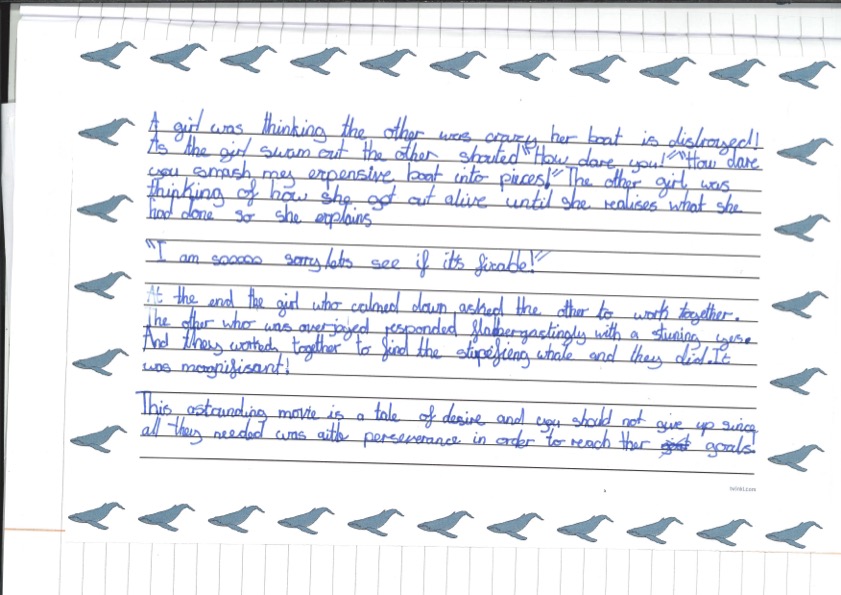 A girl was thinking the other was crazy her boat is distroyed!
As the girl swam out the other shouted "How dare you!" "How dare
you smash mey expensive boat into pieces!" The other girl was
thinking of how she got out alive until she realises what she
had done so she explains
"I am sooooo sorry lets see if it's fixable!"
At the end the girl who calmed down asked the other to work together.
The other who was overjoyed responded flabbergastingly with a stuning yes.
And they worked together to find the stupefieng whale and they did. It
was magnifisant!
This astounding movie is a tale of desire and you should not give up since
all they needed was perseverance in order to reach ther goals.